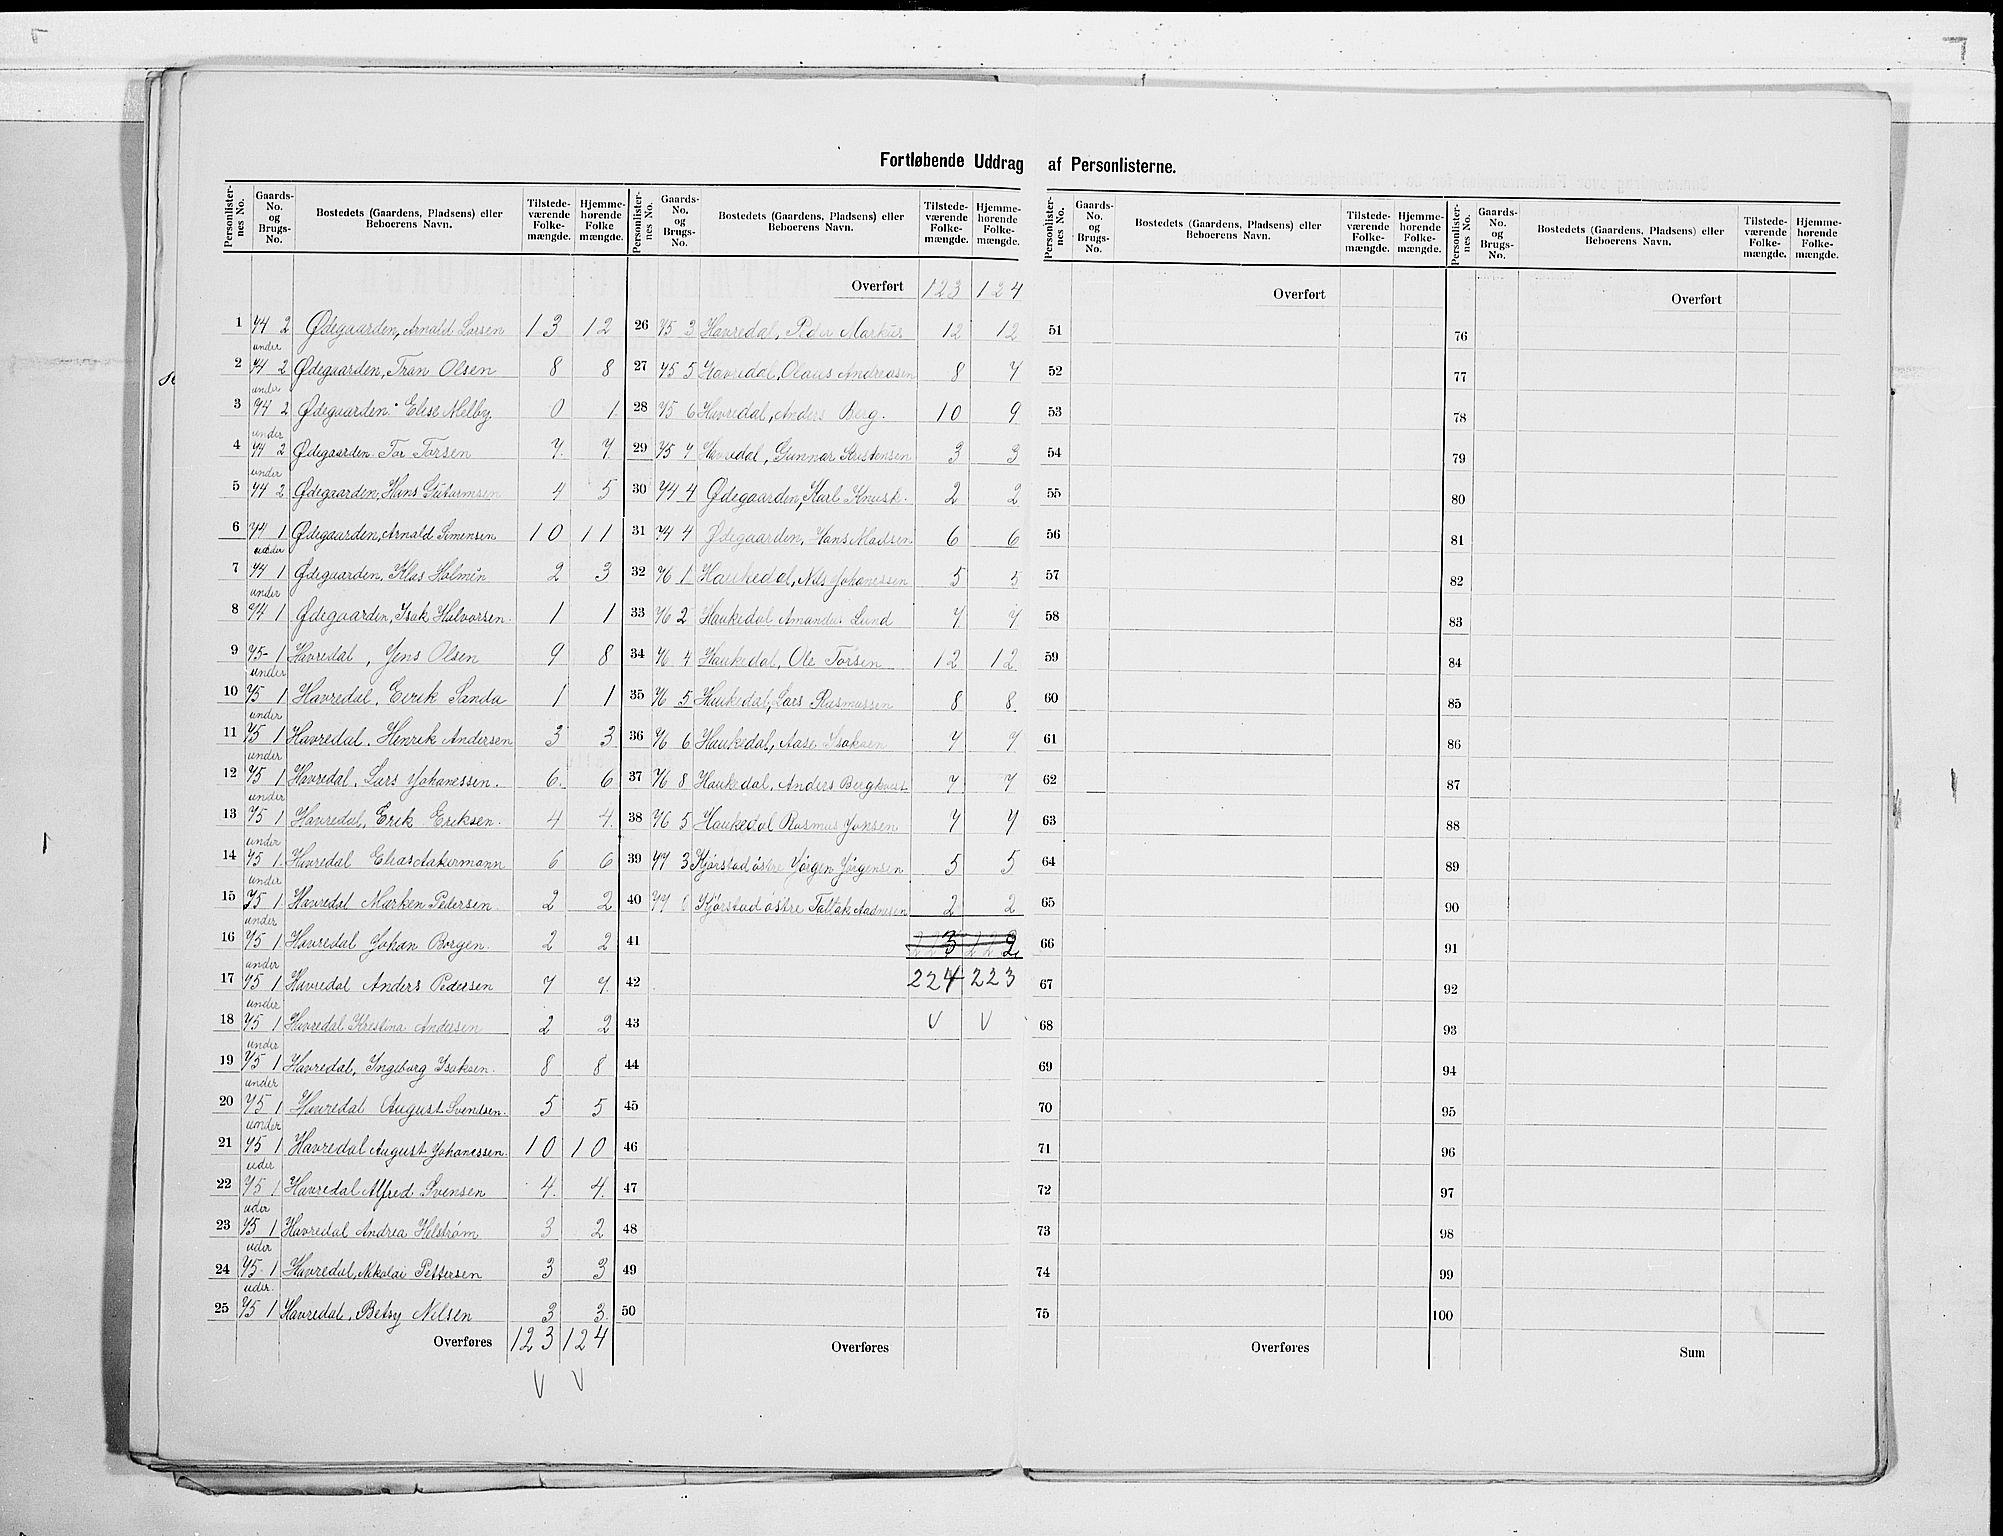 Fortløbende Uddrag af Personlisterne.
Personlister-nes No. Gaards-No. og Brugs-No. Bostedets (Gaardens, Pladsens) eller Beboerens Navn. Tilstede-værende Folke-mængde. Hjemme-hørende Folke mængde.
1 74 2 Ødegaarden, Arnald Larsen 13 12
under
2 74 2 Ødegaarden, Tran Olsen 8 8
under
3 74 2 Ødegaarden. Elise Melby 0 1
under
4 74 2 Ødegaarden. Tor Torsen 7. 7.
under
5 74 2 Ødegaarden, Hans Gutormsen 4 5
6 74 1 Ødegaarden, Arnald Simensen 10 11
under
7 74 1 Ødegaarden, Klas Holmin 2 3
under
8 74 1 Ødegaarden, Isak Halvorsen. 1 1
9 75 1 Havredal, Jens Olsen 9 8
under
10 75 1 Havredal, Eirik Sanda 1 1
under
11 75 1 Havredal. Henrik Andersen 3 3
under
12 75 1 Havredal, Lars Johanessen. 6. 6
under
13 75 1 Havredal, Erik Eriksen. 4 4.
under
14 75 1. Havredal Elias Aakermann 6 6
under
15 75 1. Havredal Marken Pedersen 2 2
under
16 75 1 Havredal Johan Borgen. 2 2
under
17 75 1 Havredal Anders Pedersen 7 7.
under
18 75 1 Havredal Kristina Andersen 2 2
under
19 75 1 Havredal, Ingeborg Isaksen. 8 8
under
20 75 1 Havredal August Svendsen. 5 5
under
21 75 1 Havredal August Johanessen. 10 10
uder
22 75 1 Havredal Alfred Svensen 4. 4.
uder
23 75 1 Havredal Andrea Helstrøm 3 2
uder
24 75 1 Havredal, Nikolai Pettersen 3 3
uder.
25 75 1 Havredal, Betsy Nilsen 3 3.
Overføres 123 124
V V
Personlister-nes No. Gaards-No. og Brugs-No. Bostedets (Gaardens, Pladsens) eller Beboerens Navn. Tilstede-værende Folke-mængde. Hjemme-hørende Folke-mængde.
Overført 123 124
26 75 3 Havredal, Peder Markus 12 12
27 75 5 Havredal, Olaus Andreasen 8 7
28 75 6 Havredal, Anders Berg. 10 9
29 75 7 Havredal, Gunnar Kristensen 3 3
30 74 4 Ødegaarden, Karl Knusk. 2 2
31 74 4 Ødegaarden, Hans Madsen 6 6
32 76 1 Haukedal, Nils Johanessen 5 5
33 76 2 Haukedal Amandus Lund 7 7
34 76 4 Haukedal, Ole Torsen 12 12
35 76 5 Haukedal, Lars Rasmussen 8 8.
36 76 6 Haukedal, Aase Isaksen 7 7
37 76 8 Haukedal, Anders Bergkvist 7 7
38 76 5 Haukedal Rasmus Jonsen 7 7
39 77 3 Kjørstad østre Jørgen Jørgensen 5 5
40 77 Kjørstad østre Taltak Aadnesen 2 2
41 223 222
42 224 223
43 V V
44
45
46
47
48
49
50
Overføres
Personlister-nes No. Gaards-No. og Brugs-No. Bostedets (Gaardens, Pladsens) eller Beboerens Navn. Tilstede-værende Folke-mængde. Hjemme-hørende Folke-mængde.
Overført
51
52
53
54
55
56
57
58
59
60
61
62
63
64
65
66
67
68
69
70
71
72
73
74
75
Overføres
Personlister-nes No. Gaards-No. og Brugs-No. Bostedets (Gaardens, Pladsens) eller Beboerens Navn. Tilstede-værende Folke-mængde. Hjemme-hørende Folke-mængde.
Overført
76
77
78
79
80
81
82
83
84
85
86
87
88
89
90
91
92
93
94
95
96
97
98
99
100
Sum